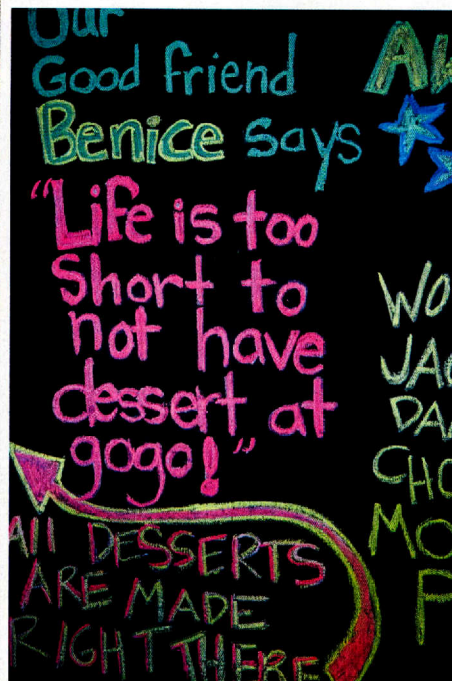 Our
Good friend
Benice says
"Life is too
Short to
not have
dessert at
gogo!"
All DESSERTS
ARE MADE
RIGHT THERE
WO
JAC
DA
CHO
MO
P